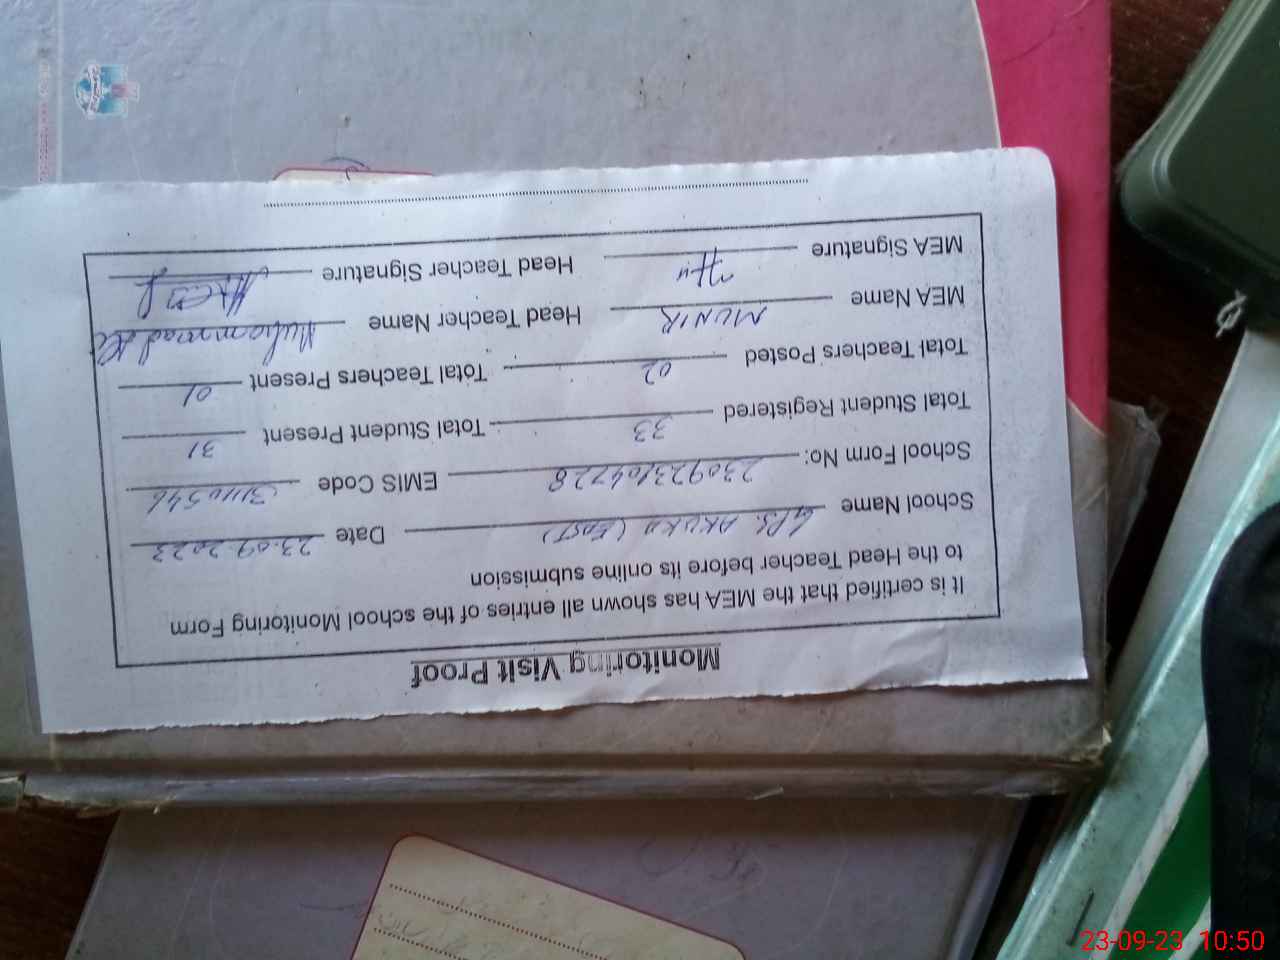 Monitoring Visit Proof
It is certified that the MEA has shown all entries of the school Monitoring Form
to the Head Teacher before its online submission
School Name GPS. AKUKA (EAST) Date 23.09.2023
School Form No: 230923104728 EMIS Code 31110546
Total Student Registered 33 Total Student Present 31
Total Teachers Posted 02 Total Teachers Present 01
MEA Name MUNIR Head Teacher Name Muhammad Ali
MEA Signature Head Teacher Signature
23-09-23 10:50